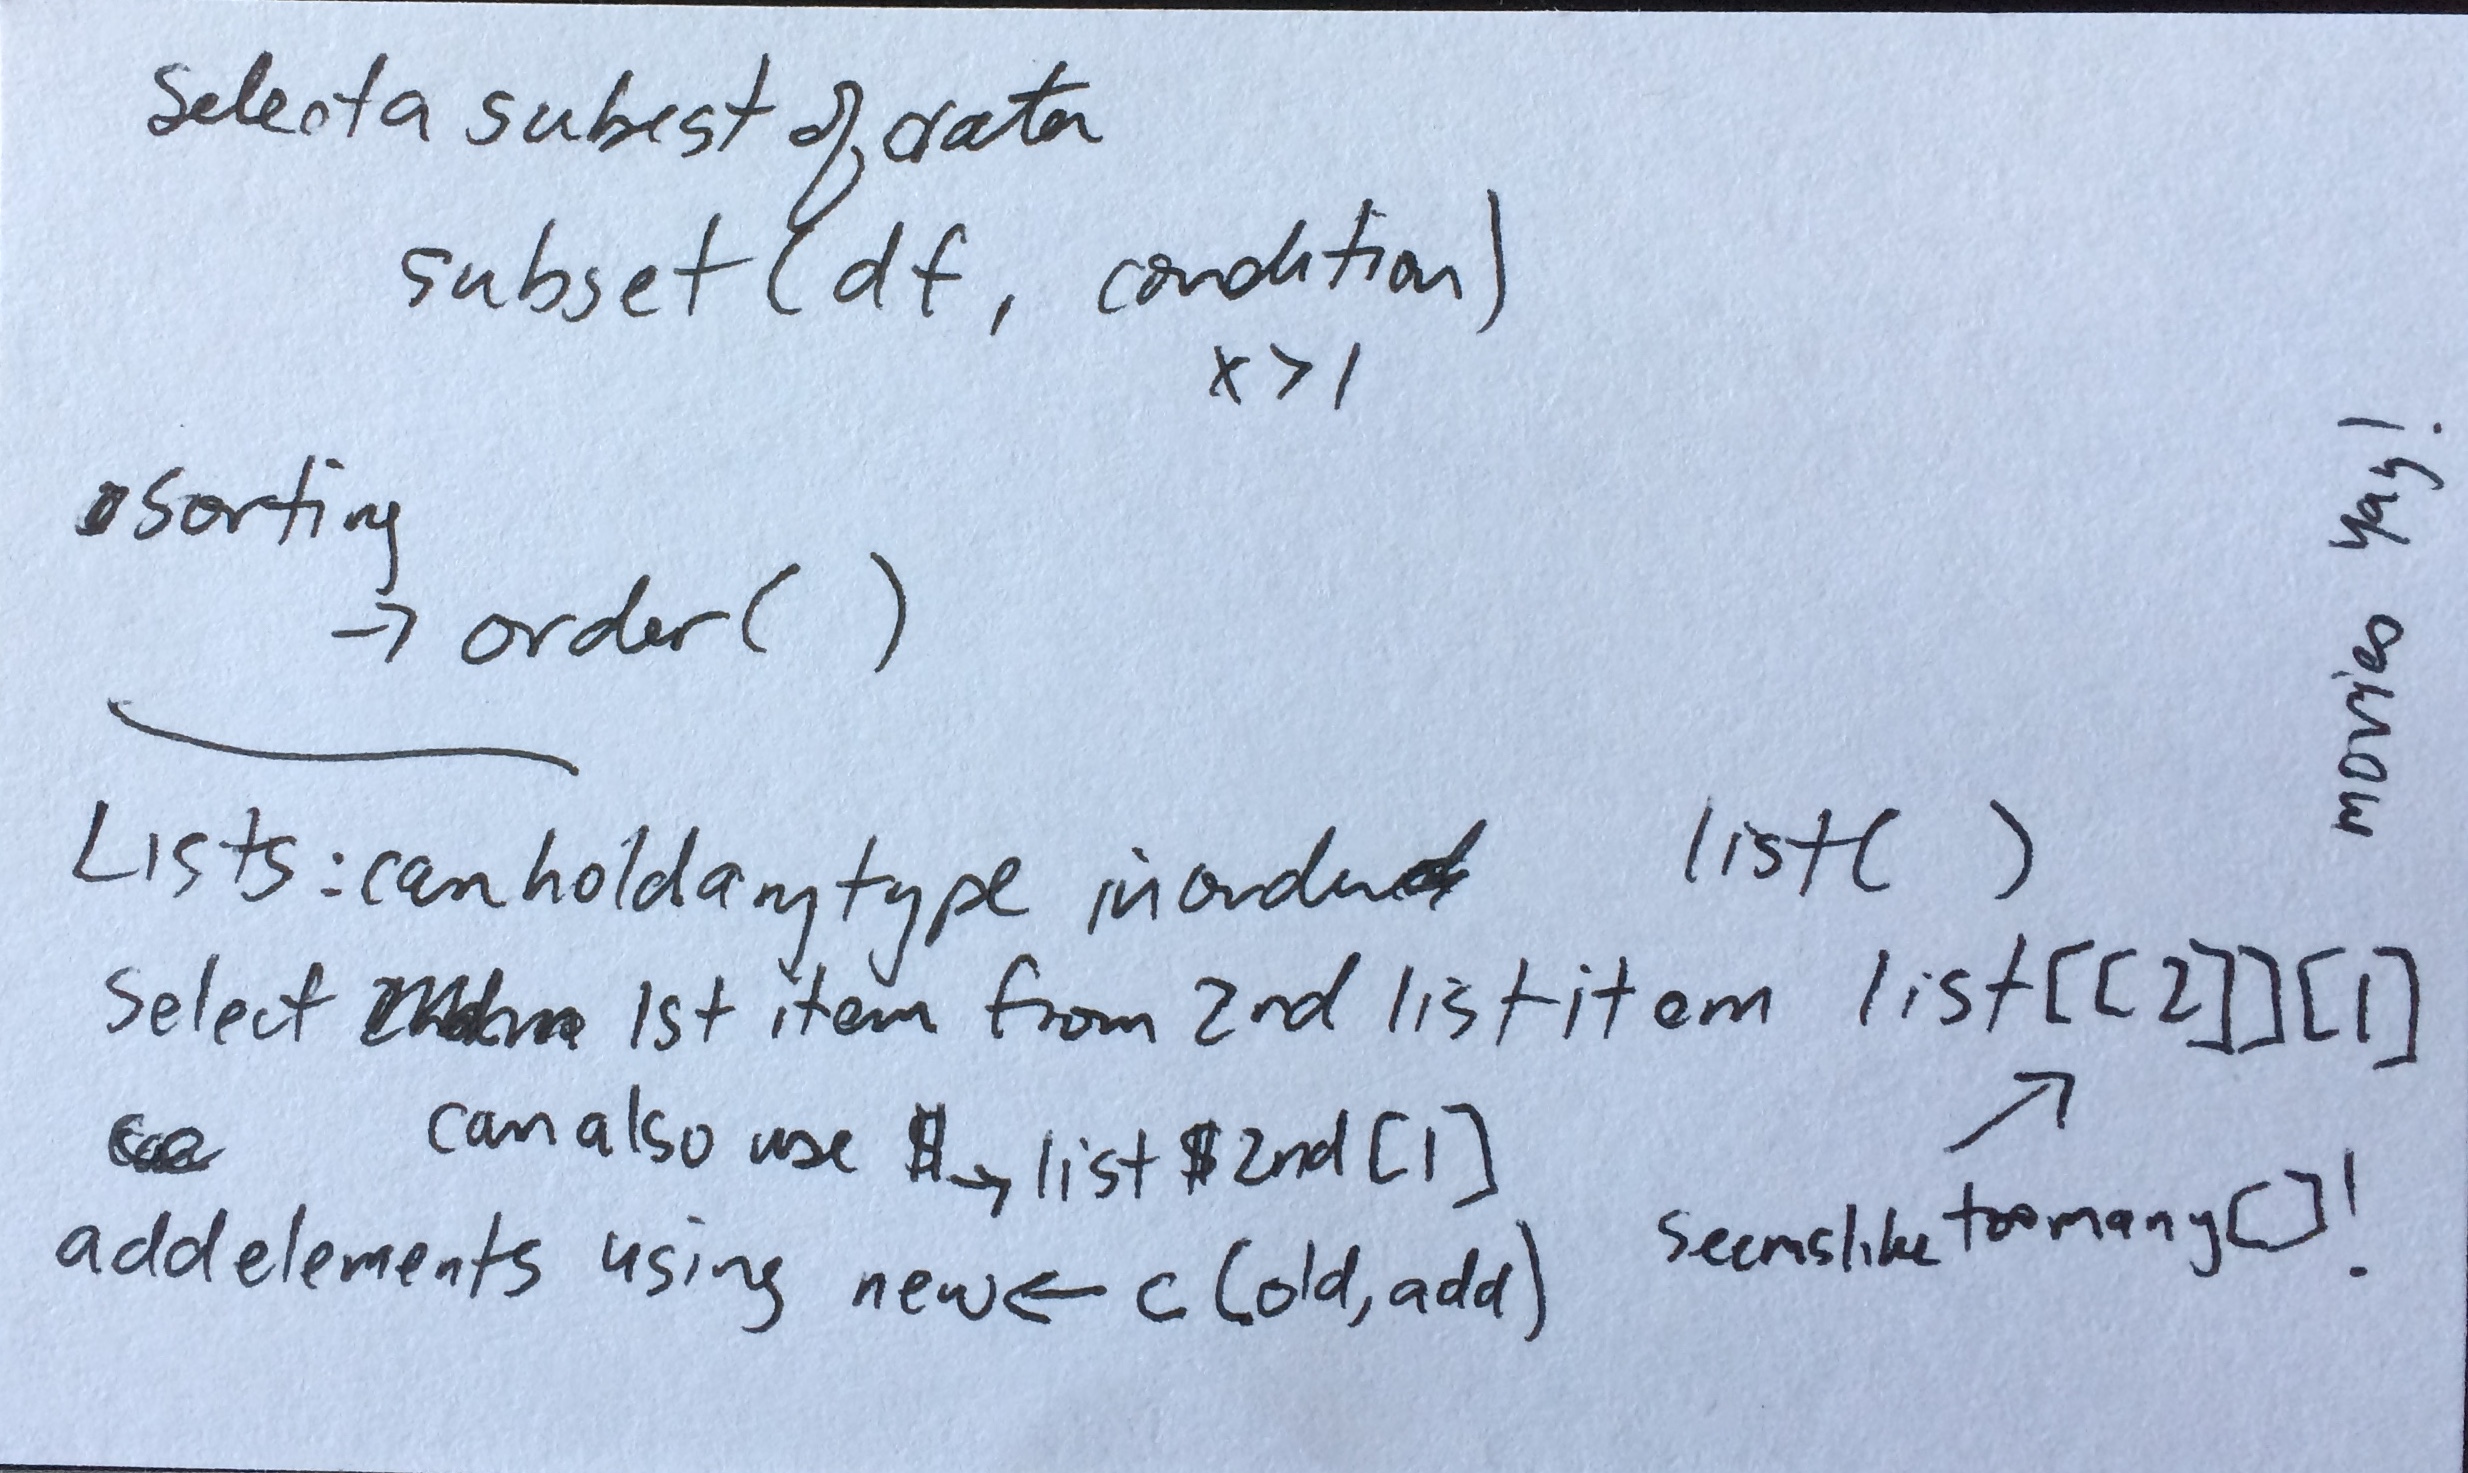 Select a subest of data
subset(df, condition)
x>1
sorting
→ order( )
Lists: can hold any type in order list( )
Select 1st item from 2nd list item list[[2]][1]
can also use $ → list$2nd[1]
seems like too many []!
add elements using new ← c(old, add)
movies yay!